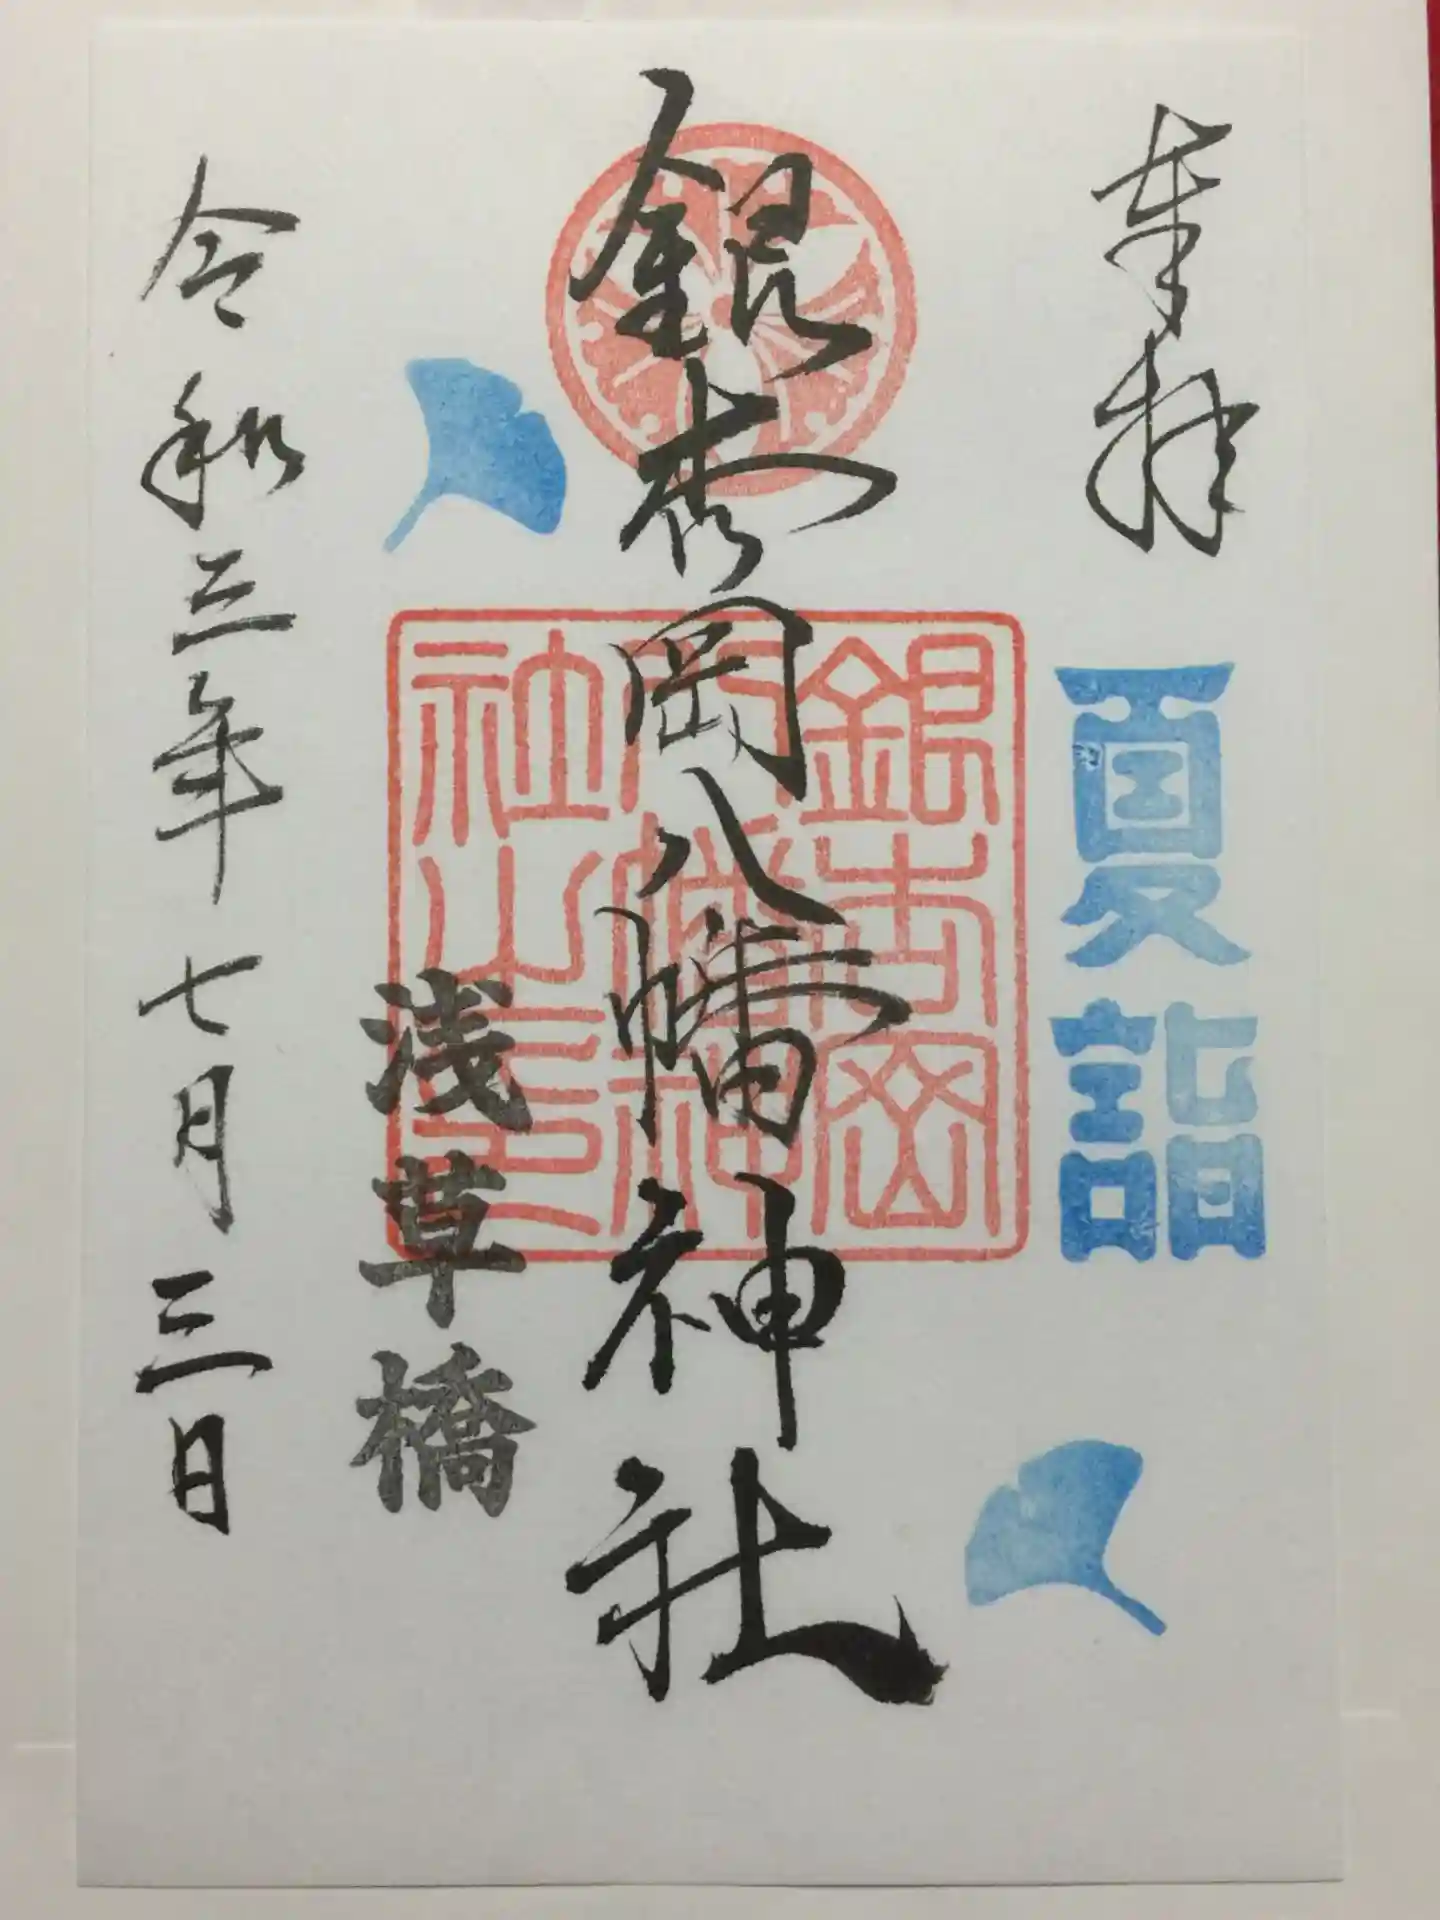 奉拝
夏詣
銀杏岡八幡神社
銀杏岡八幡神社之印
浅草橋
令和三年七月三日